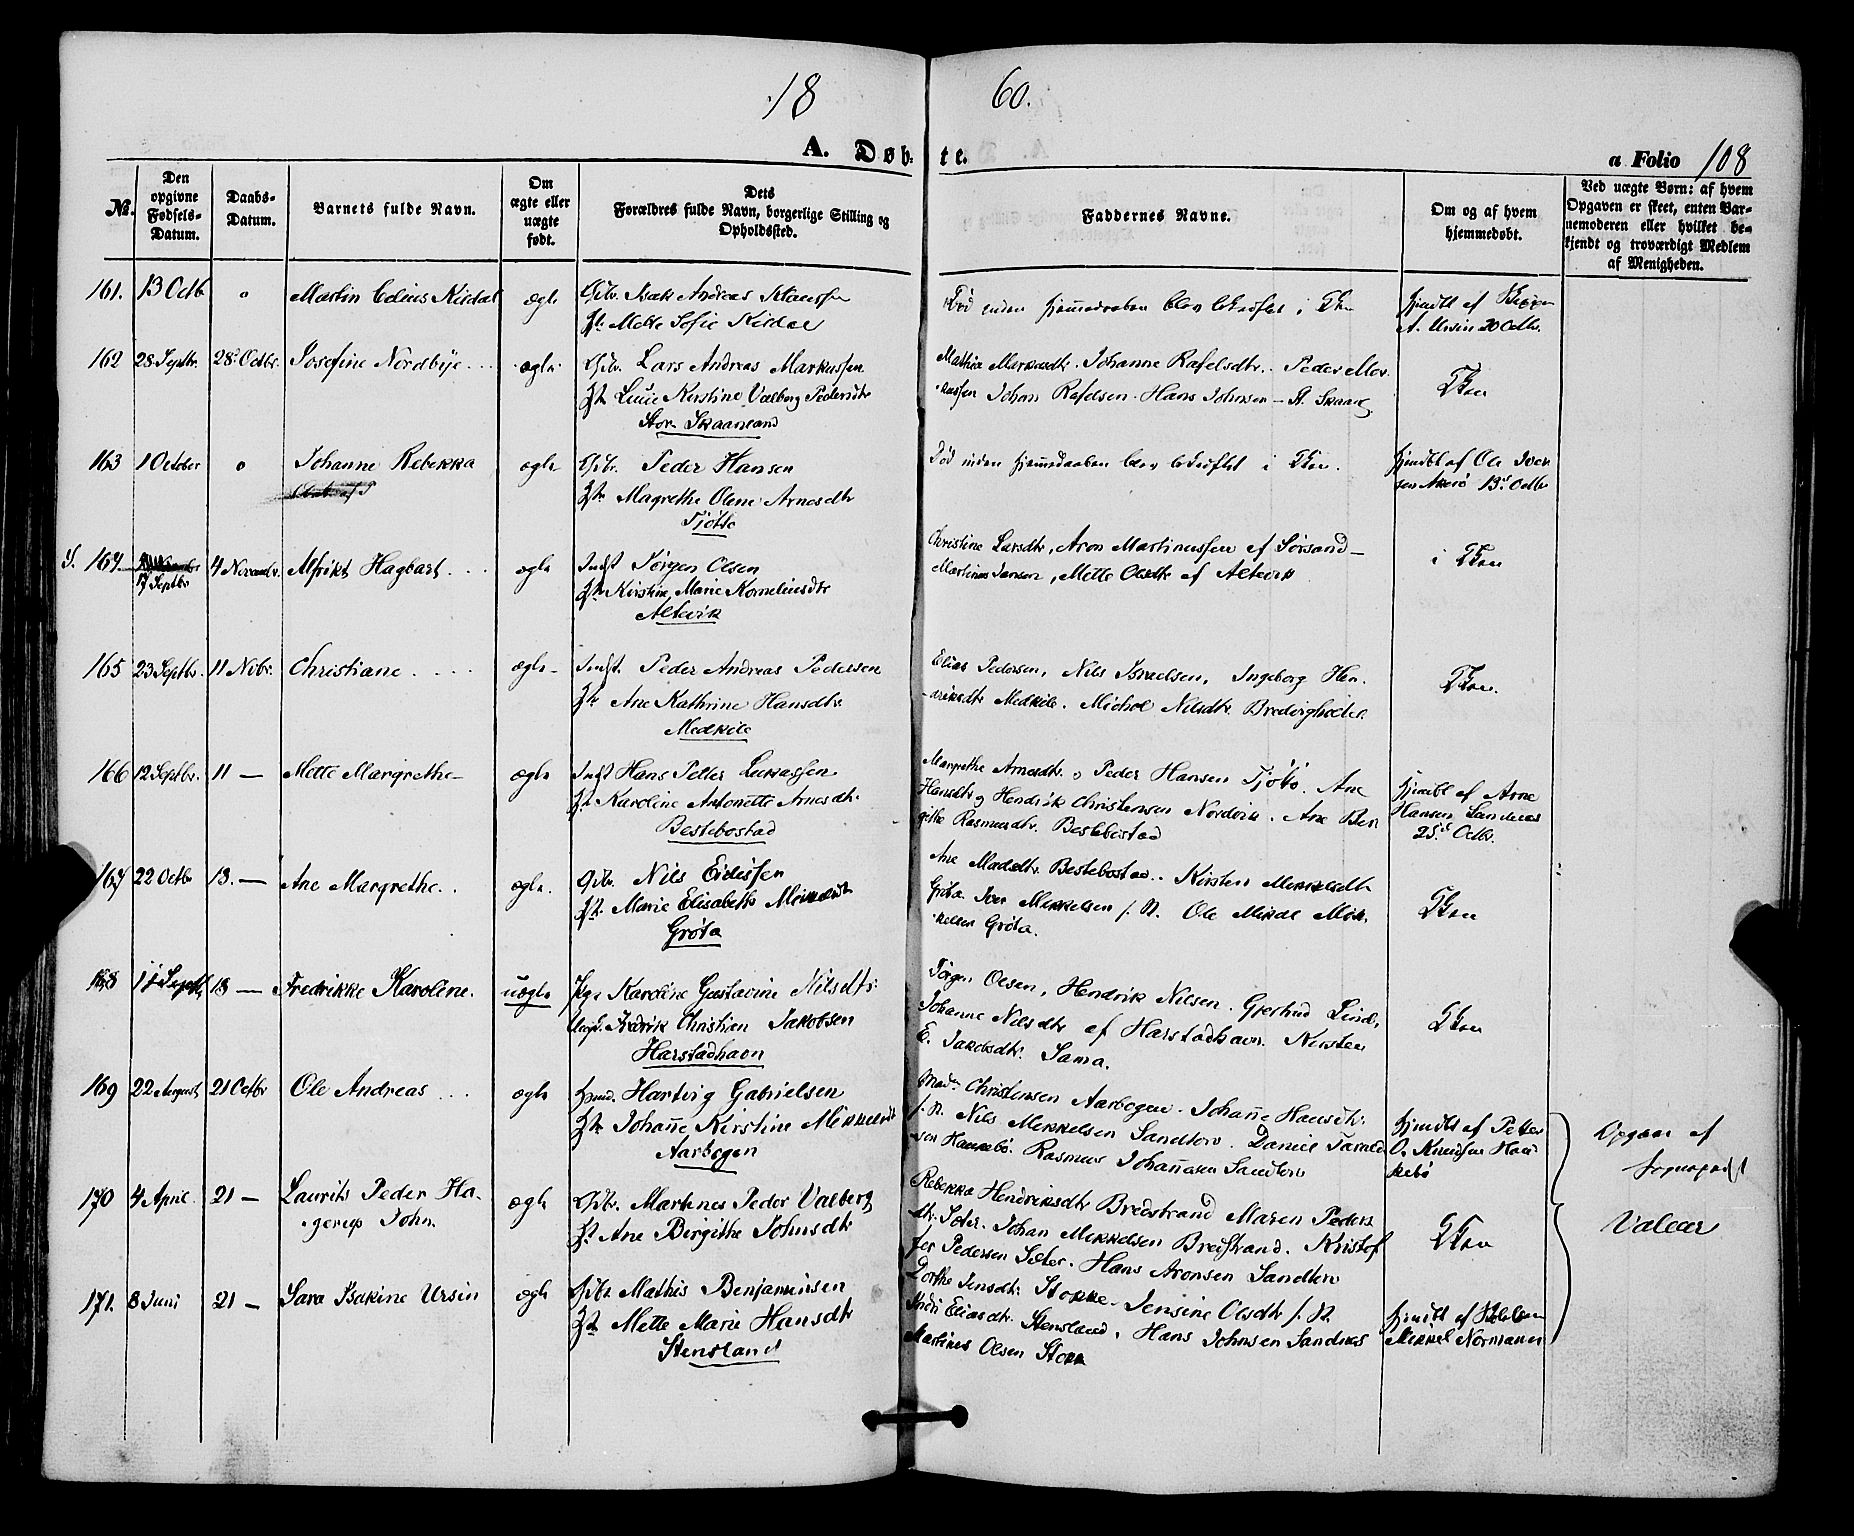 18 60.
A. Døbte.
a Folio 108
No.
Den opgivne Fødsels-Datum.
Daabs-Datum.
Barnets fulde Navn.
Om ægte eller uægte født.
Dets Forældres fulde Navn, borgerlige Stilling og Opholdssted.
Faddernes Navne.
Om og af hvem hjemmedøbt.
Ved uægte Børn: af hvem Opgaven er skeet, enten Barnemoderen eller hvilket bekjendt og troværdigt Medlem af Menigheden.
161. 13 Octb. Martin Edius Kildal ægte Gbr. Isak Andreas Klausen
Mette Sofie Kildal
Død inden hjemmedaaben blev bekræftet i Kirken
hjmdbt af
A. Ursin 20 Octbr.
162 28 Septbr. 28 Octbr. Josefine Nordbye ægte Gbr. Lars Andreas Markussen
Kirstine Valborg Pedersdtr
Stor Skaanland
Johanne Rafelsdtr. Peder Mar-
kussen Johan Rafelsen. Hans Johnsen
163 1 October Johanne Rebekka ægte Gbr. Peder Hansen
Magrethe Olene Arnesdtr
Tjøtte
Død inden hjemmedaaben blev bekræftet i
hjmdbt af Ole Iver-
sen 13de Octbr
S. 164 17 Septbr 4 Novembr. Alfrikt Hagbart ægte Indst Jørgen Olsen
Kirstine Marie Korneliusdtr
Altevik
Christine Larsdtr, Aron Martinussen af Sørsand
Martinus Jansen, Mette Olsdtr af Altevik
165 23 Septbr. 11 Nvbr. Christiane ægte Indst. Peder Andreas Pedersen
Ane Kathrine Hansdtr
Medkile
Elias Pedersen, Nils Isaelsen, Ingeborg Hen-
driksdtr Medkile. Michol Nilsdtr. Bredvigholtet
166 12 Septbr. 11 — Mette Margrethe ægte Indst Hans Peter Lukassen
Karoline Antonette Arnesdtr.
Bestebostad
Margrethe Arnesdtr. o Peder Hansen Tjøtto. Ane
Hansdtr og Hendrik Christensen Nordvik. Ane Ber-
githe Rasmusdtr. Bestebostad
hjmdbt af Arne
Hansen Sandnes
25de Octbr.
167 22 Octbr 13. — Ane Margrethe ægte. Gbr. Nils Eidissen
Marie Elisabeth
Grøta
Ane Madsdtr Bestebostad. Kirsten Mekkelsdtr
Grøta. Iver Mekkelsen f. N. Ole Mikal Mek-
kelsen Grøta.
168 Septbr 13 — Fredrikke Karoline. uægte Pige Karoline Gustavine Nilsdtr.
Ungk. Fredrik Christian Jakobsen
Harstadhavn
Jørgen Olsen, Hendrik Nilsen. Gjertrud Lind,
Johanne Nilsdtr af Harstadhavn. Kirsten
E. Jakobsdtr. Sama.
169 22 August 21 Octbr Ole Andreas ægte Hartvig Gabrielsen
Johanne Kirstine Mekkelsdtr
Aarbogen
Mad. Christensen Aarbogen. Johanne Hansdtr.
f. N. Nils Mekkelsen Sandtorv. Daniel
Rasmus Johannesen Sandtorv
hjmdbt af Petter
O. Knudsen Hau-
kebø
Opgave af
170 4 April 21 — Laurits Peder Ha-
gerup John. ægte Gbr. Martenes Peder Valberg
Ane Birgithe Johnsdtr
Rebekka Hendriksdtr Bredstrand Maren Peders-
dtr. Soter. Johan Mekkelsen Bredstrand. Kristof-
fer Pedersen Soter. Hans Aronsen Sandtorv
Valear
171. 8 Juni 21 — Sara Isakine Ursin ægte Gbr. Mathis Benjaminsen
Mette Marie Hansdtr
Stensland
Dorthe Jensdtr. Stokke. Jensine Olsdtr f. N.
Eliasdtr. Stensland. Hans Johnsen Sandnes
Martines Olsen Stokk
hjmdbt af
Mekkel Normann